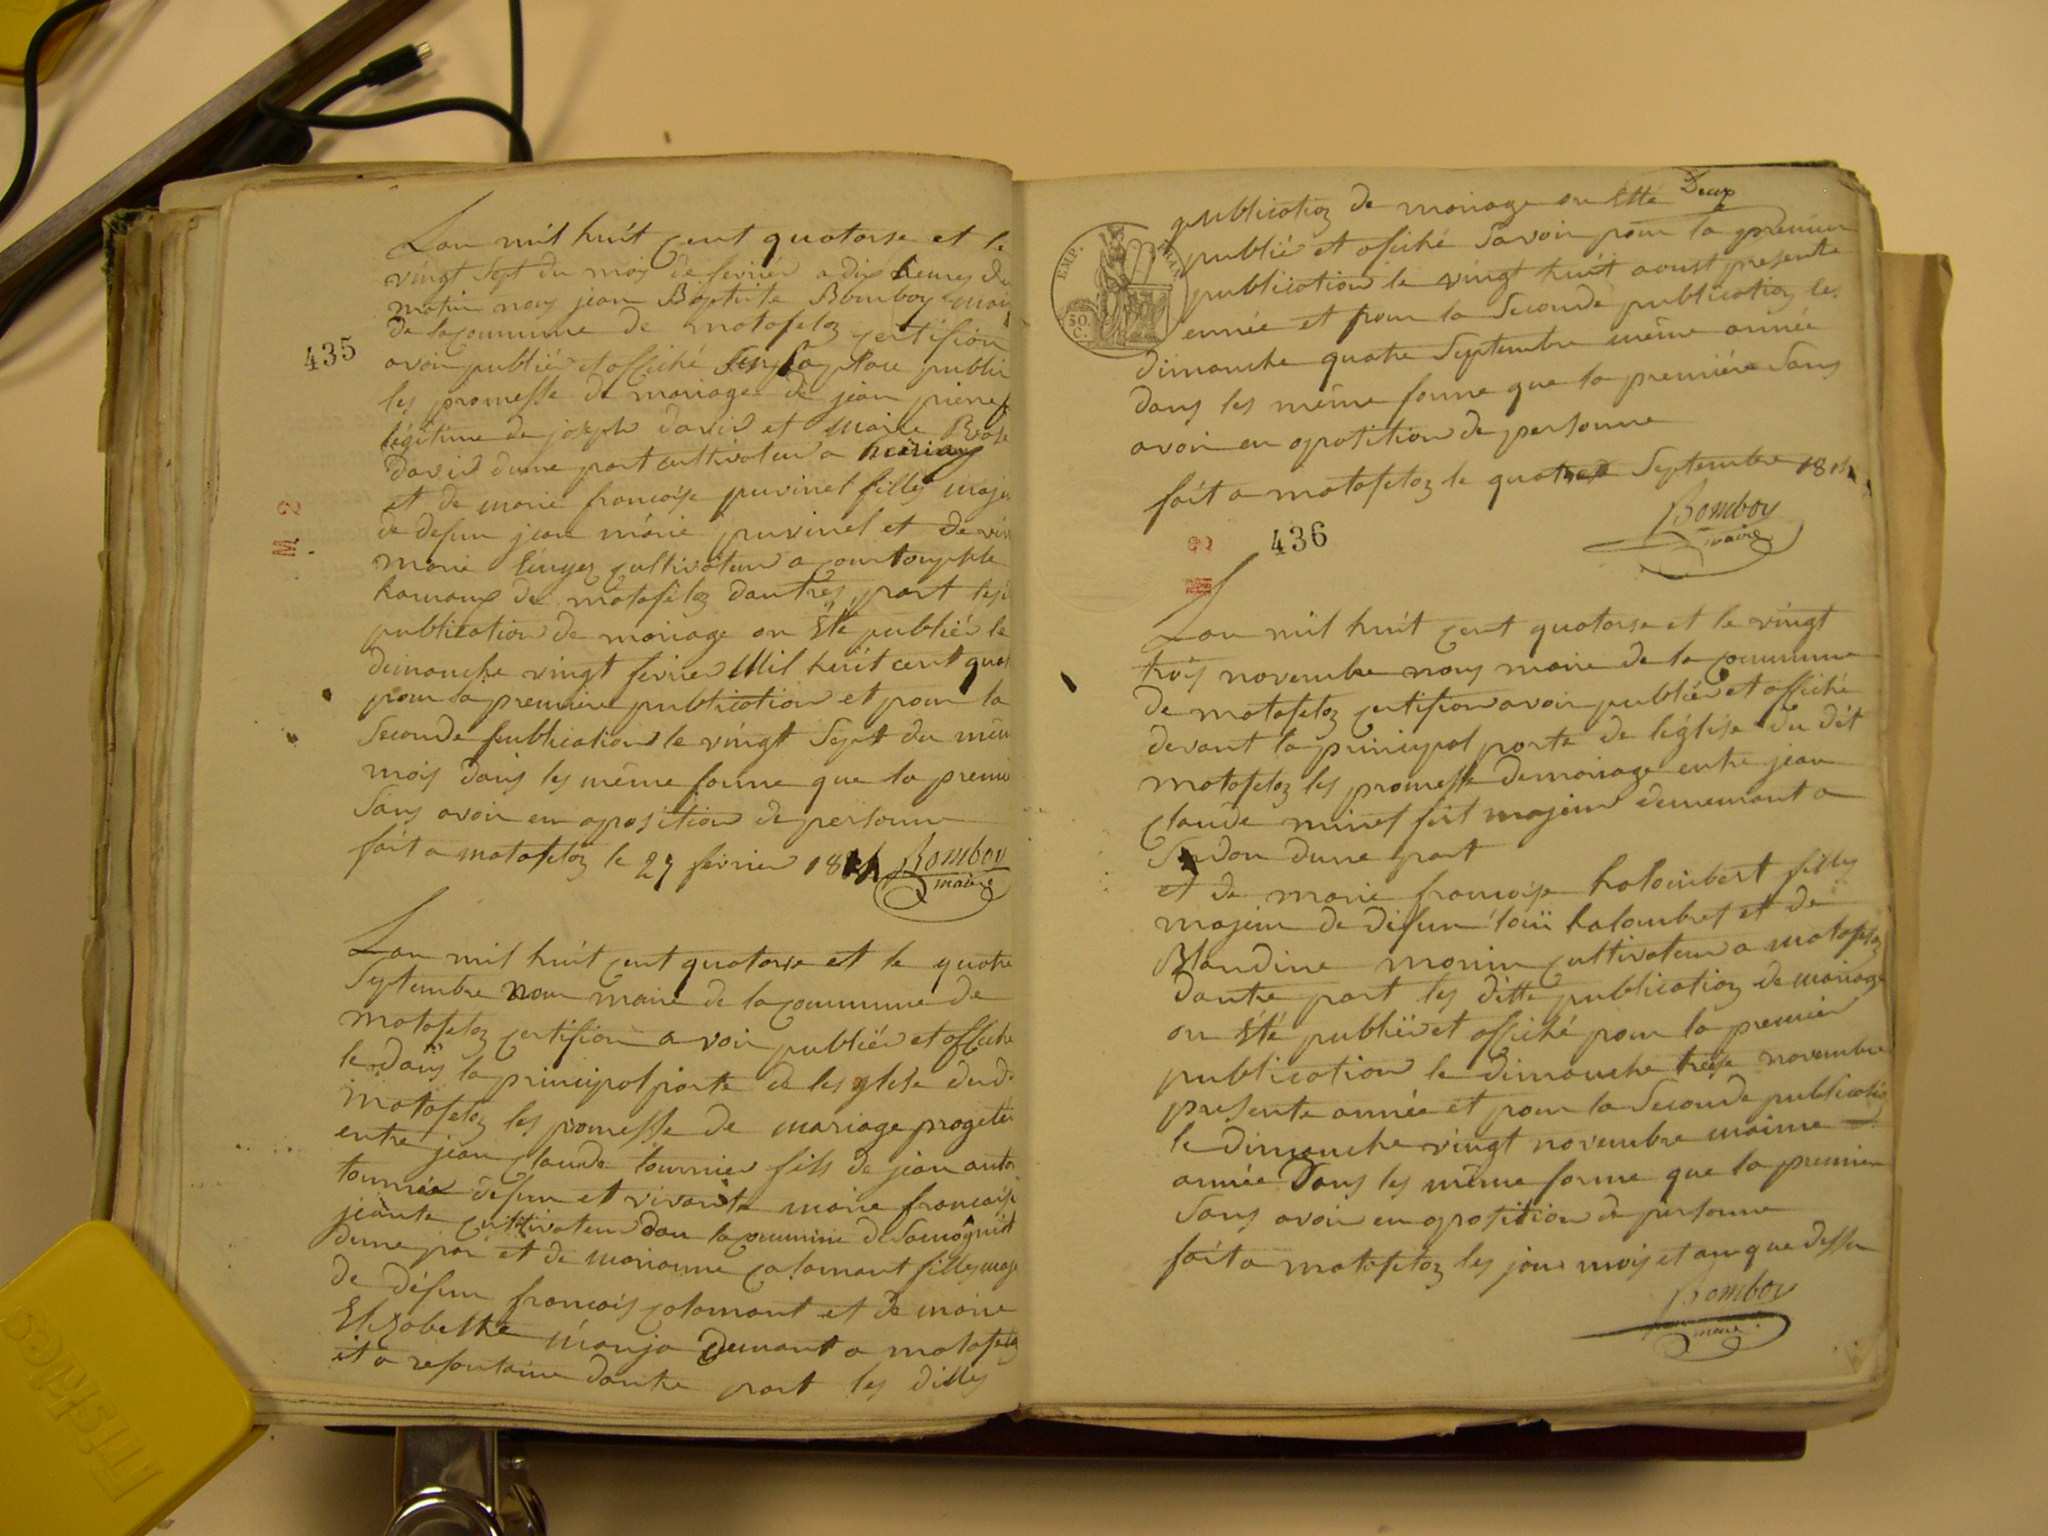 Lan mil huit cent quatorse et le
vingt sept du mois de fevrier a dix heures du
matin nous jean Baptiste Bomboy mair
de la commune de matafelon certifion
435
avoir publié et affiché sur la place public
les promesse de mariage de jean pierre
légitime de joseph david et marie Rose
david dune part cultivateur a
et de marie francoise puvinel filles majer
de defun jean marie puvinel et de viv
M. 2
marie cultivateur a
hamaux de matafelon dautres part les
publication de mariage on été publiér le
deimanche vingt fevrier Mil huit cent quat
pour la premiere publication et pour la
seconde publication le vingt sept du mem
mois dans les même forme que la premie
sans avoir eu aposition de personne
fait a matafelon le 27 fevrier 1814 Bomboy
maire
Lan mil huit cent quatorse et le quatre
septembre nous maire de la commune de
matafelon certifion a voir publiér et affiché
le dans la principal porte de les glise dud
matafelon les promesse de mariage progetér
entre jean claude tournier fils de jean anto
tournier defun et vivante marie francoise
cultivateur dan la commune de Samognat
dune par et de marianne calamant filles maje
de défun francois calamant et de marie
Elizabethe demant a matafelon
et a dautre part les dittes
publication de mariage on été Deux
EMP. FRAN.
50 C.
publié et afiché savoir pour la premier
publication le vingt huit aoust presente
année et pour la seconde publication le
dimanche quatre septembre même année
dans les même forme que la premiére sans
avoir eu opotition de personne
fait a matafelon le quatre septembre 1814
Bomboy
maire
2 436
M
Lan mil huit cent quatorse et le vingt
trois novembre nous maire de la commune
de matafelon certifion avoir publiér et affiché
devant la principal porte de léglise du dit
matafelon les promesse de mariage entre jean
claude minet fist majeur demeurant a
dune part
et de marie francoise halombert filles
majeur de défun loui halombret et de
Blandine monin cultivateur a matafelon
dautre part les ditte publication de mariage
on été publiér et affiché pour la premier
publication le dimanche treise novembre
presente année et pour la seconde publication
le dimanche vingt novembre maime
année dans les même forme que la premier
sans avoir eu opotition de personne
fait a matafelon les jour mois et an que dessu
Bomboy
maire
Fiskes